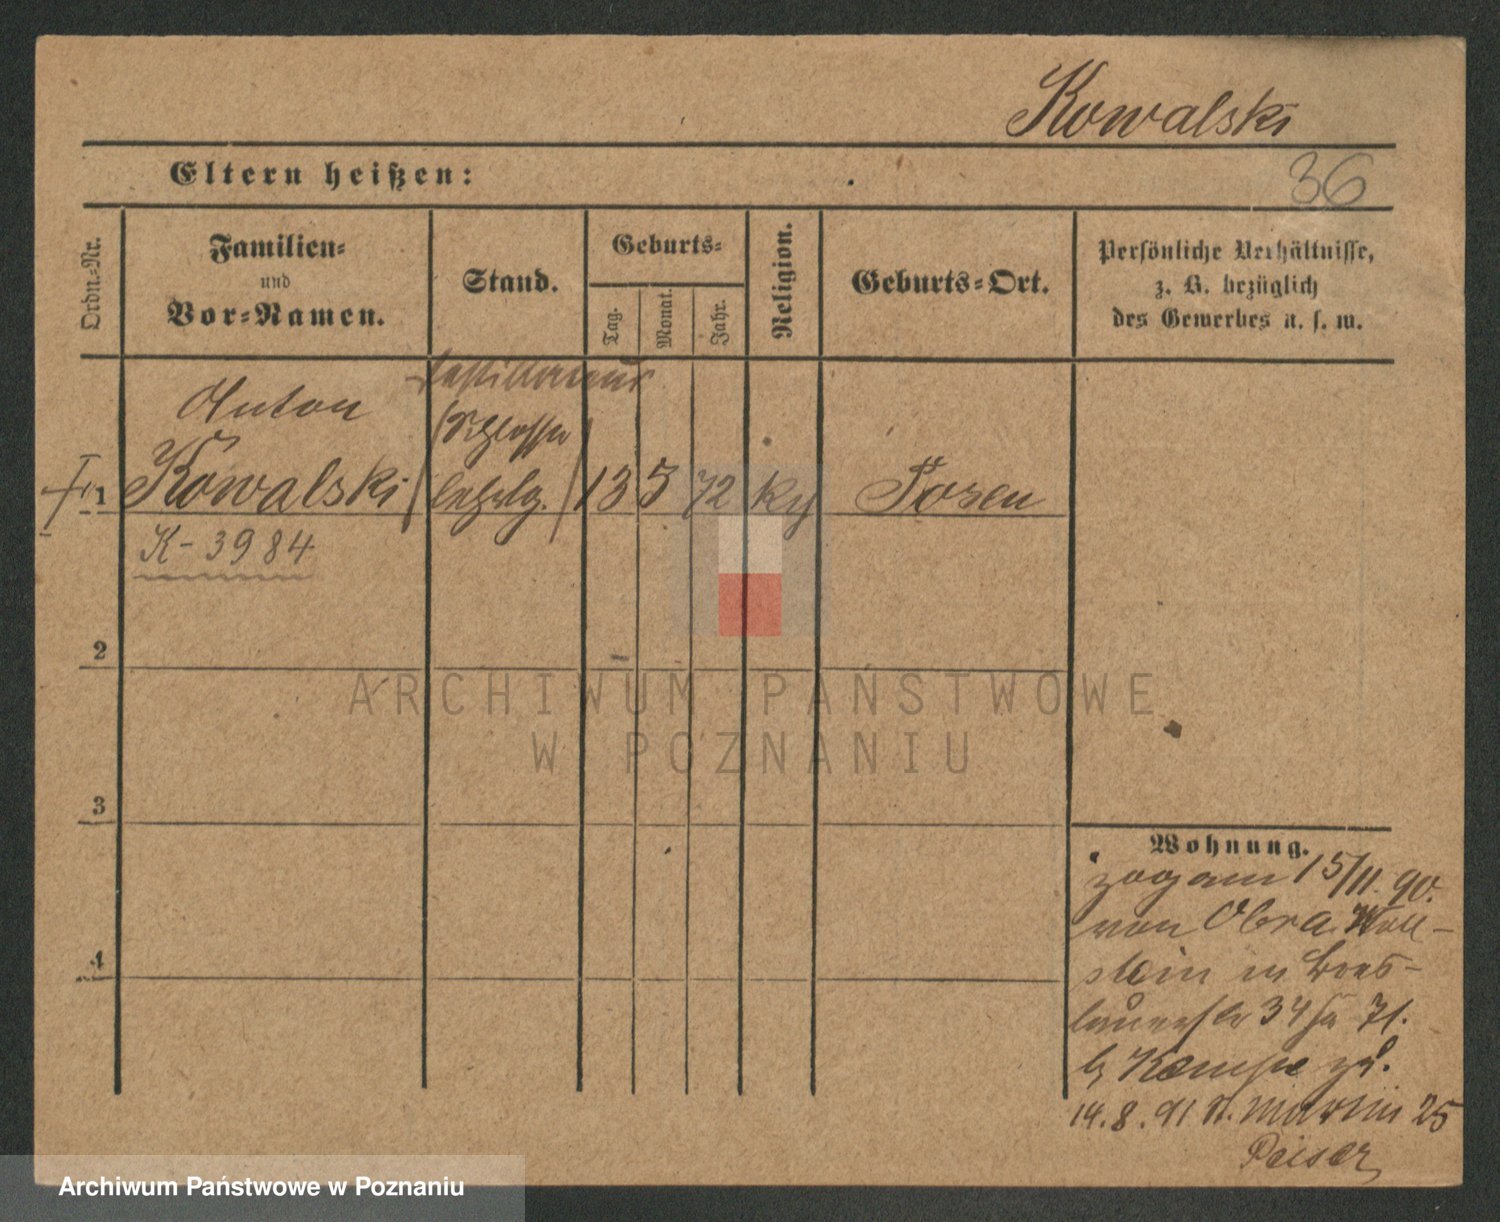 Kowalski
Eltern heißen:
36
Ordn.-Nr.
Familien-
und
Vor-Namen.
Stand.
Geburts-
Tag.
Monat.
Jahr.
Religion.
Geburts-Ort.
Persönliche Verhältnisse,
z. B. bezüglich
des Gewerbes u. s. w.
Anton
Schlosser
1
Kowalski
lehrlg.
13
5
72
Posen
K-3984
2
ARCHIWUM PAŃSTWOWE
W POZNANIU
3
Wohnung.
zog am 15/11. 90.
von Obra Woll-
stein in Bres-
lauerstr 34
14.8.91 St. Martin 25
Peiser
4
Archiwum Państwowe w Poznaniu